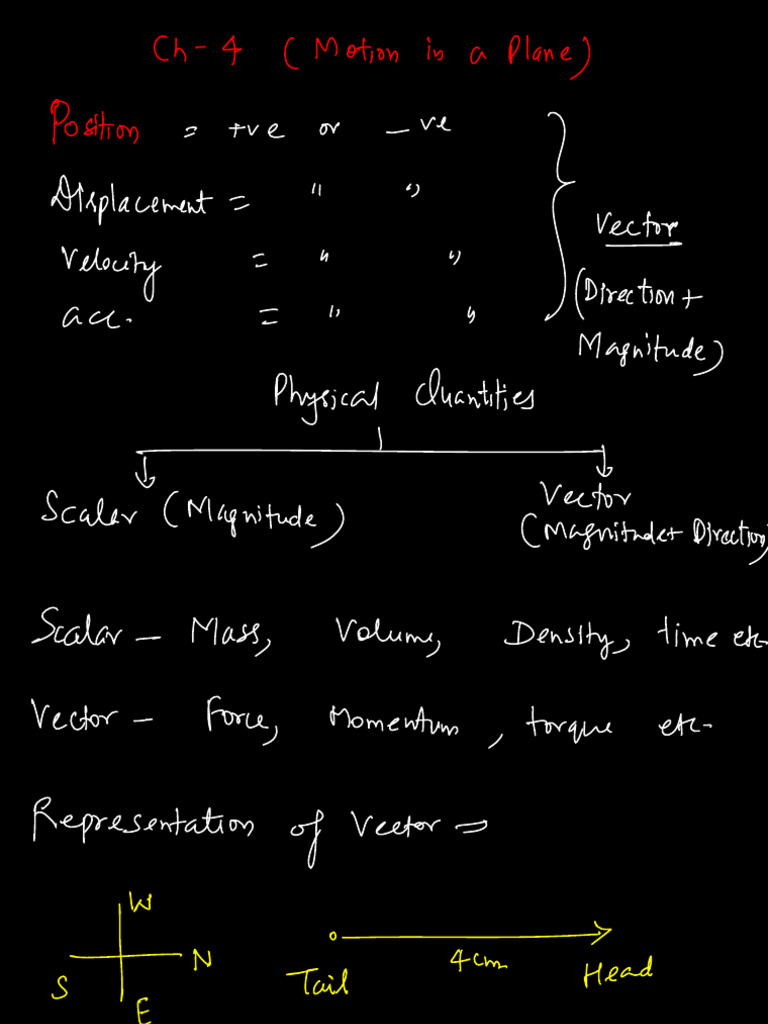 Ch-4 (Motion in a Plane)
Position = +ve or -ve
Displacement = " "
Velocity = " "
acc. = " "
Vector
(Direction +
Magnitude)
Physical Quantities
Scalar (Magnitude)
Vector
(Magnitude + Direction)
Scalar - Mass, Volume, Density, time etc-
Vector - Force, Momentum, torque etc-
Representation of Vector =>
W
S N
E
Tail 4cm Head